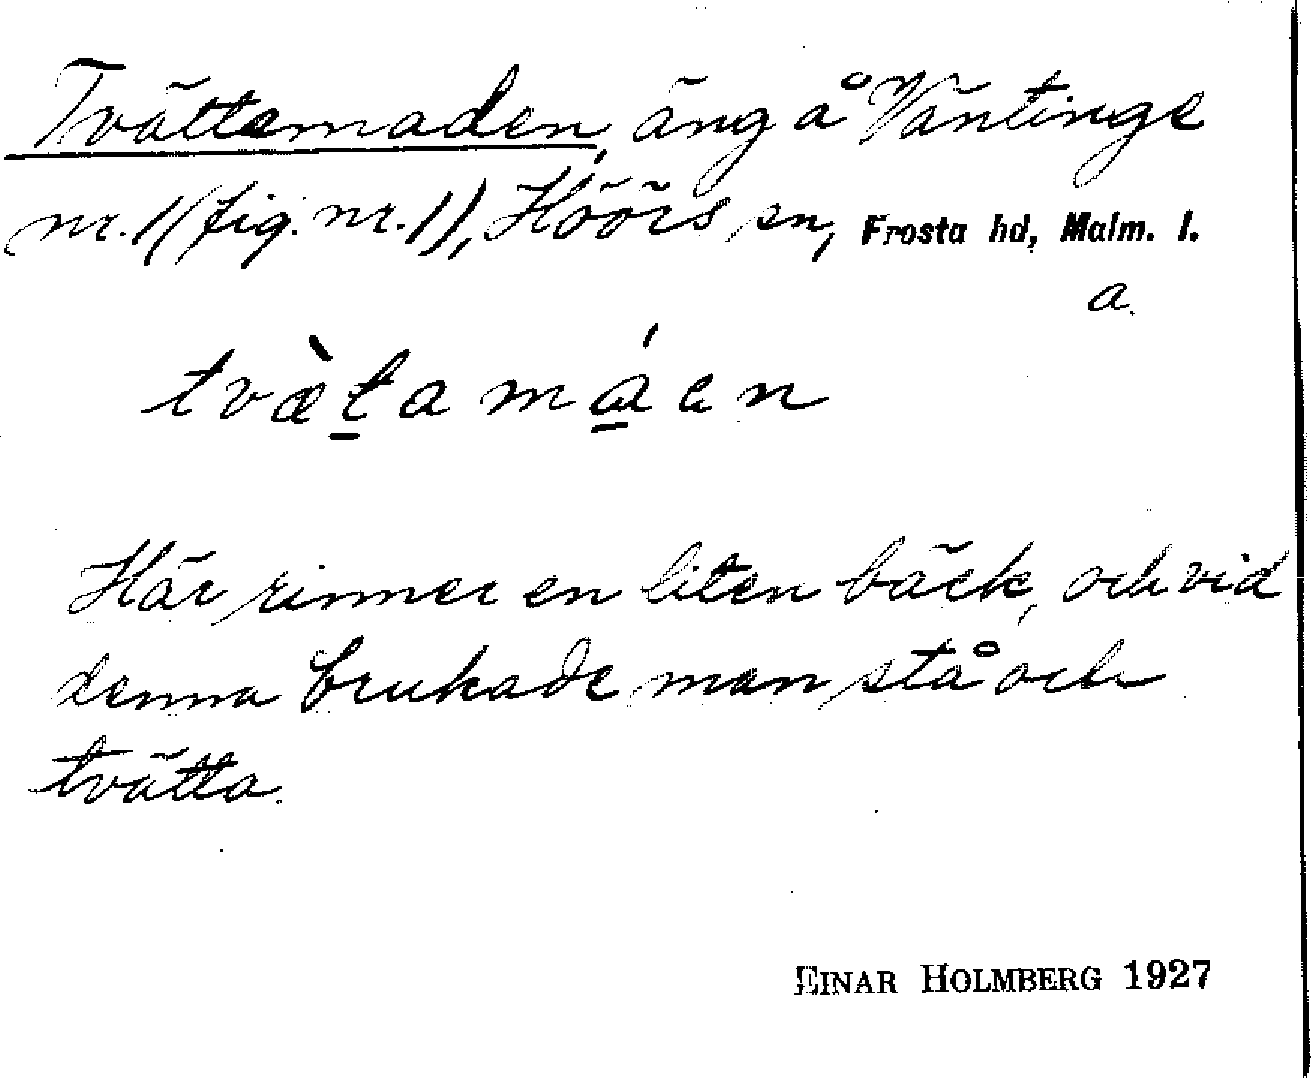 Tvättemaden, äng å Väntinge
nr. 1 (fig. nr. 1), Höörs sn, Frosta hd, Malm. l.
a.
tvæ̀t̲amá̲en
Här rinner en liten bäck, och vid
denna brukade man stå och
tvätta.
EINAR HOLMBERG 1927